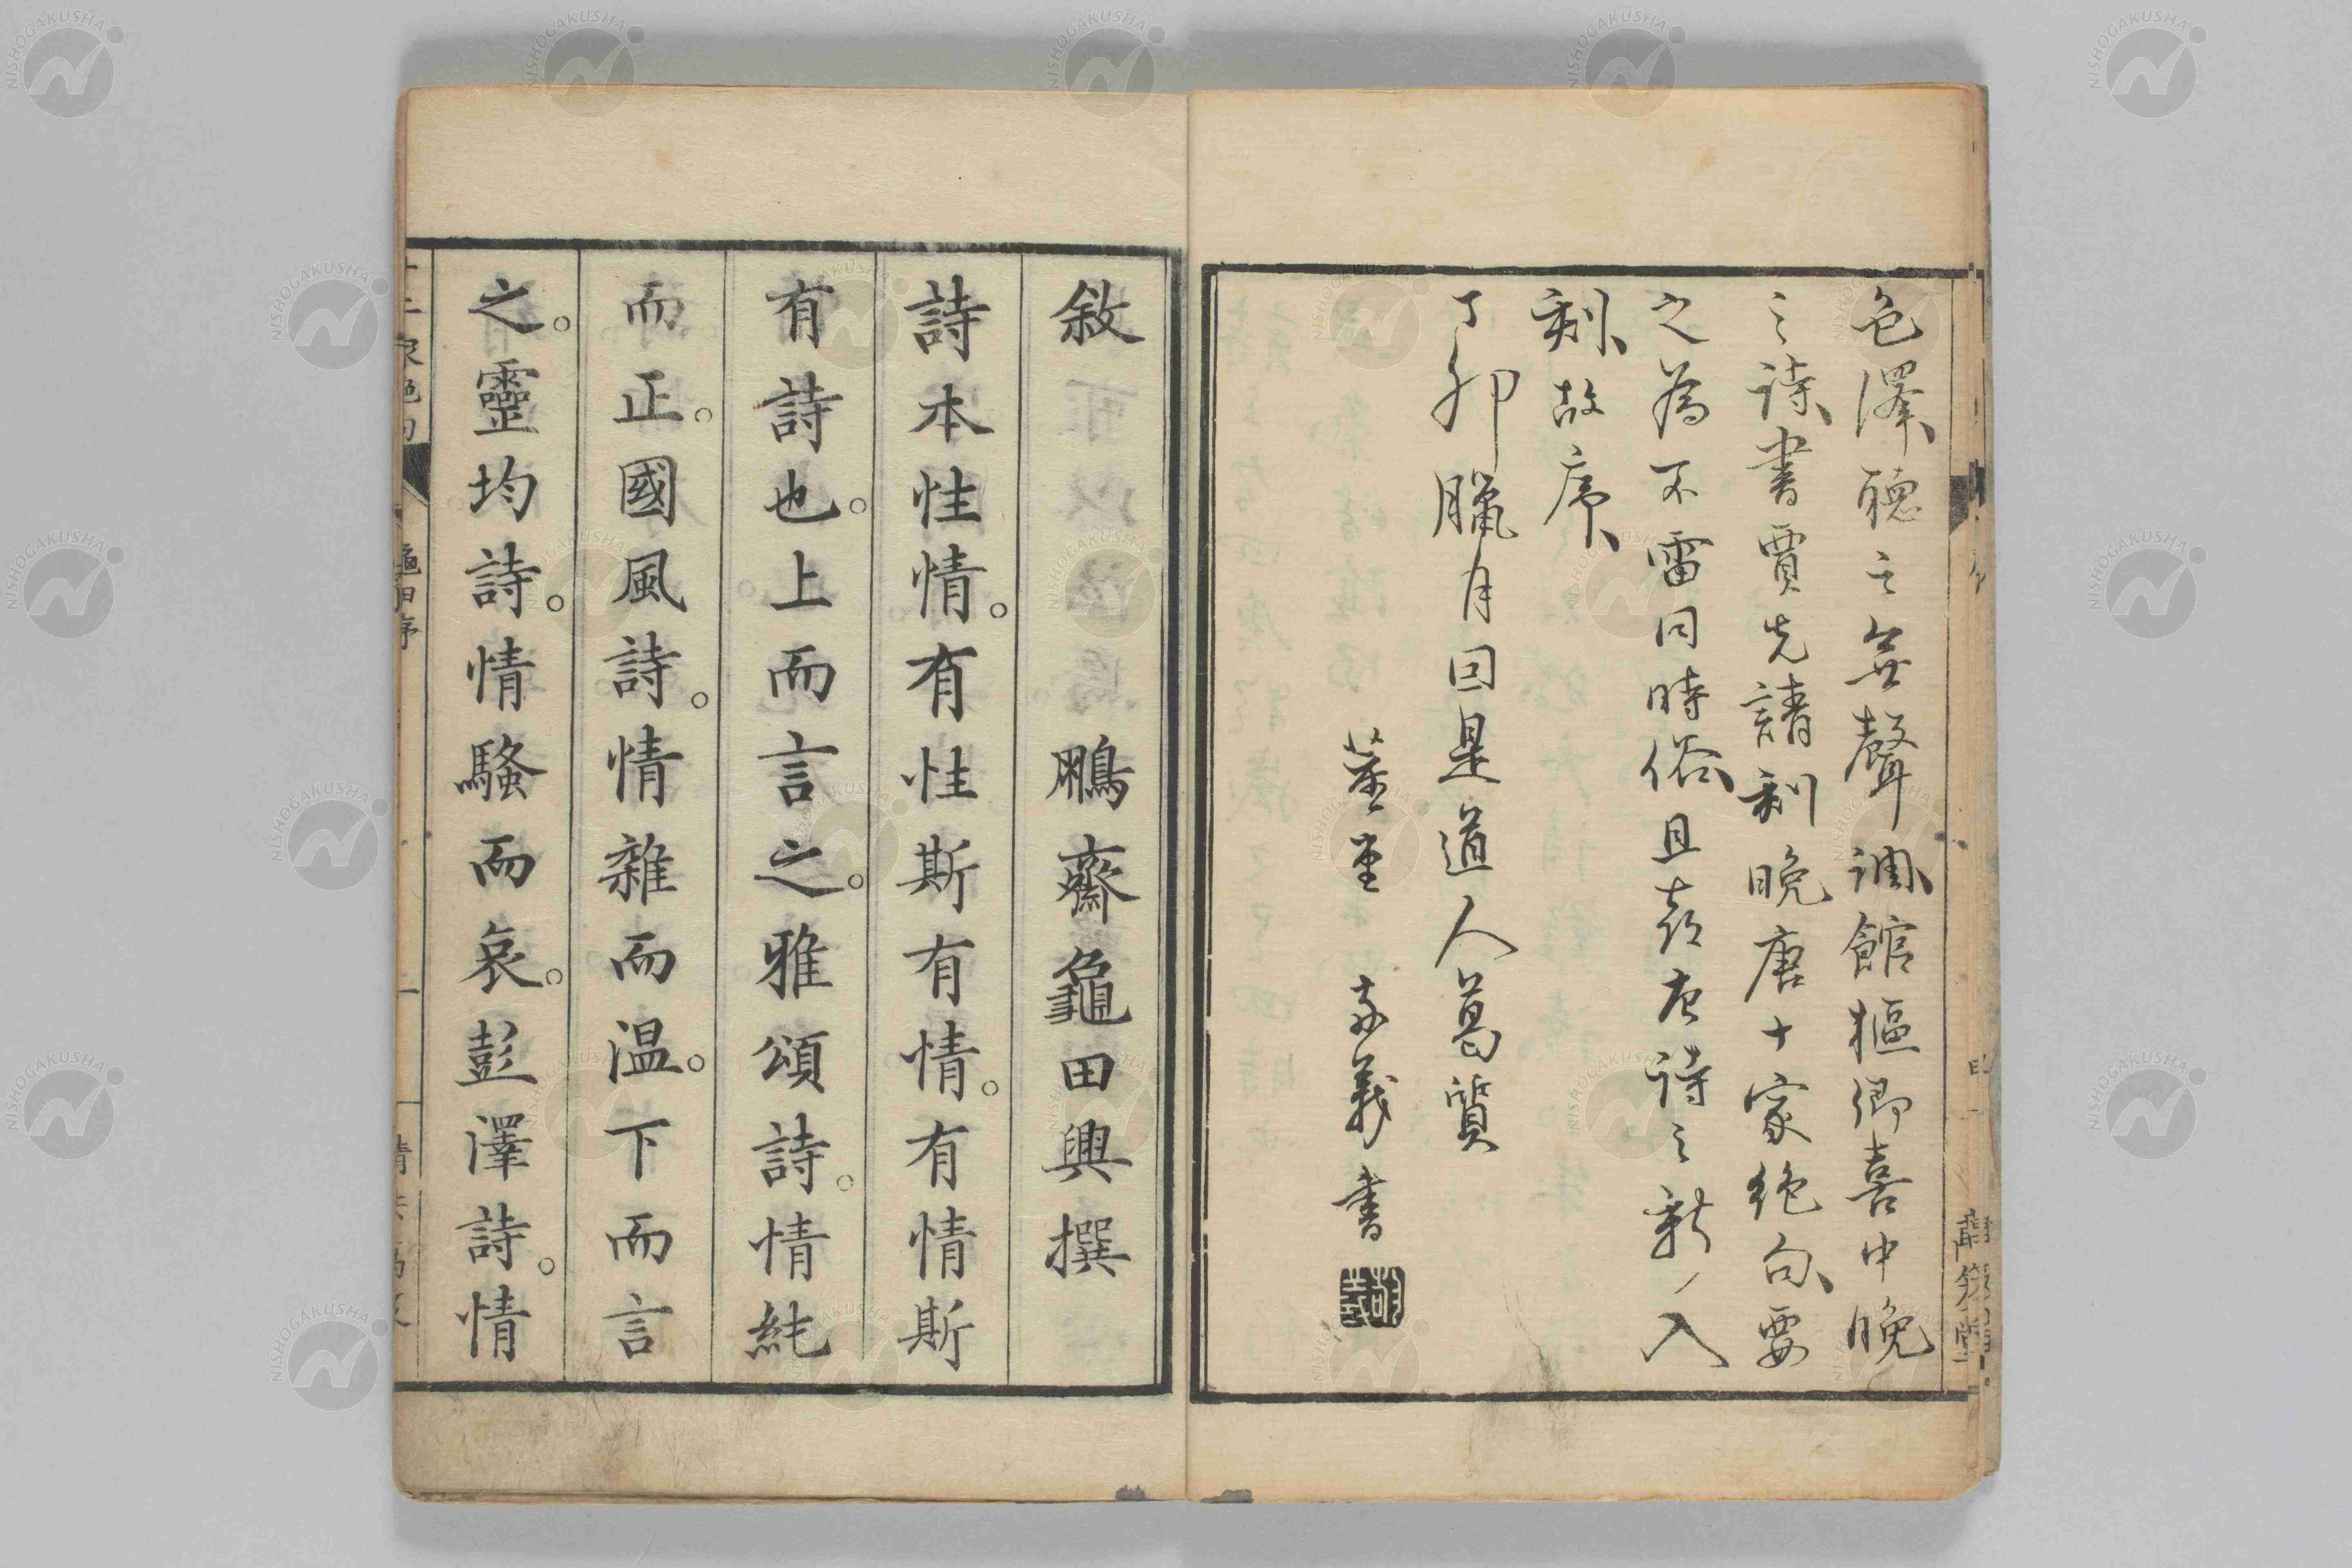 色澤聽之無聲調館樞卿喜中晚
之詩書賈先請刻晚唐十家絶句要
之為不雷同時俗且喜唐詩之新入
刻故序
丁卯臘月因是道人葛質
義書
敘 鵬齋龜田興撰
詩本性情。有性斯有情。有情斯
有詩也。上而言之。雅頌詩。情純
而正。國風詩。情雜而温。下而言
之。靈均詩。情騷而哀。彭澤詩。情
NISHOGAKUSHA